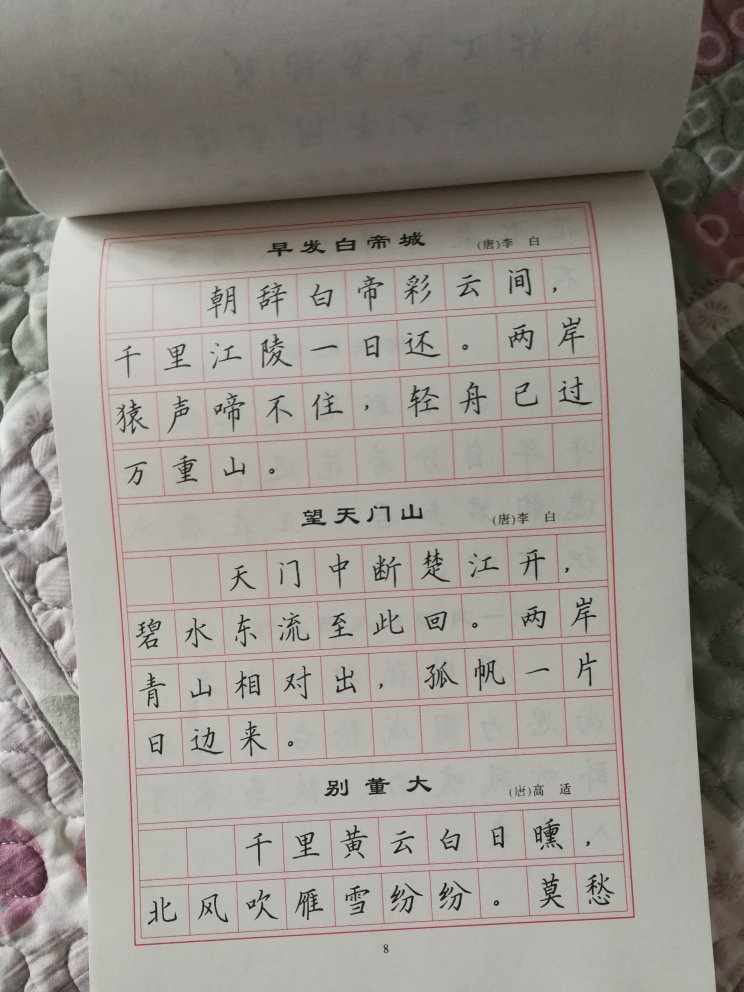 早发白帝城 (唐)李 白
朝辞白帝彩云间,
千里江陵一日还。两岸
猿声啼不住,轻舟已过
万重山。
望天门山 (唐)李 白
天门中断楚江开,
碧水东流至此回。两岸
青山相对出,孤帆一片
日边来。
别董大 (唐)高 适
千里黄云白日曛,
北风吹雁雪纷纷。莫愁
8